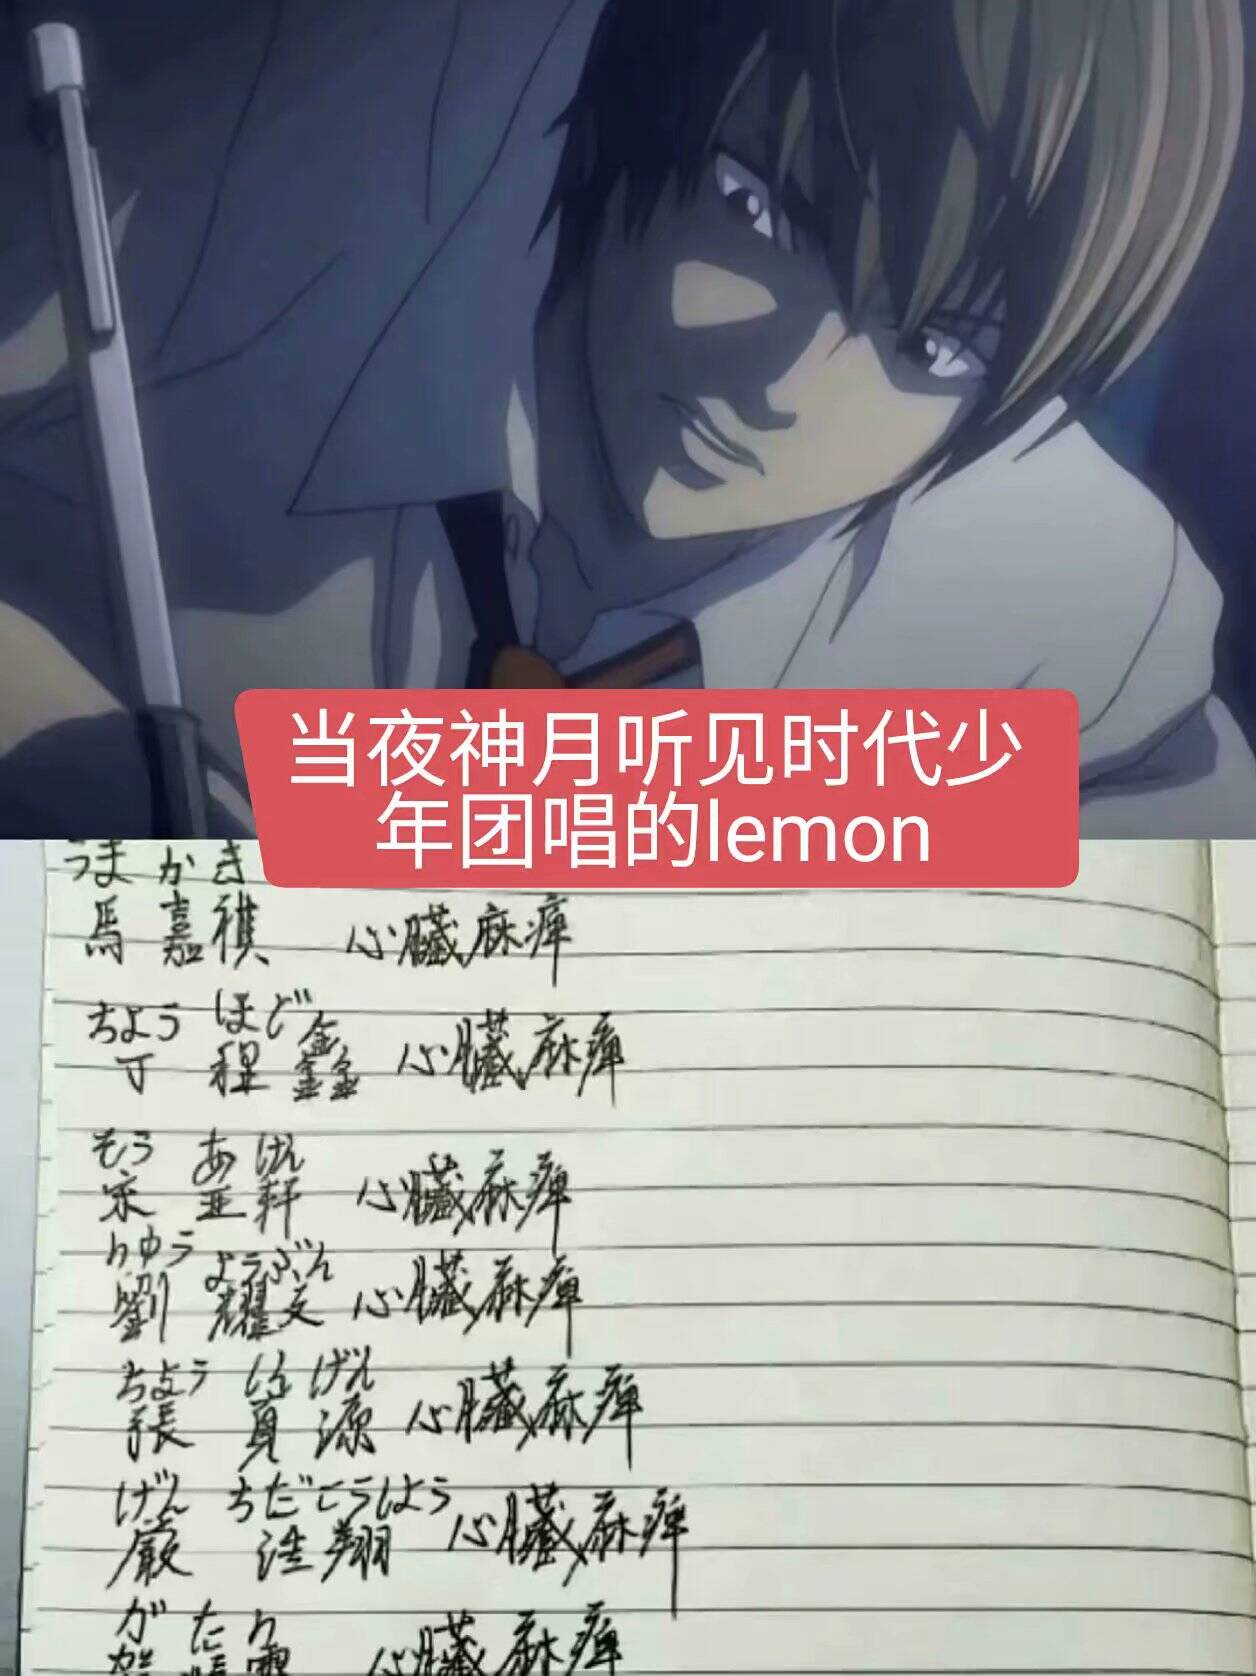 当夜神月听见时代少
年团唱的lemon
うま か き
馬 嘉祺 心臓麻痺
ちょう ほど
丁 程鑫 心臓麻痺
そう あ けん
宋 亜軒 心臓麻痺
りゅう ようぶん
劉 耀文 心臓麻痺
ちょう しん げん
張 真源 心臓麻痺
げん ちだこうしょう
厳 浩翔 心臓麻痺
が たn
賀 心臓麻痺